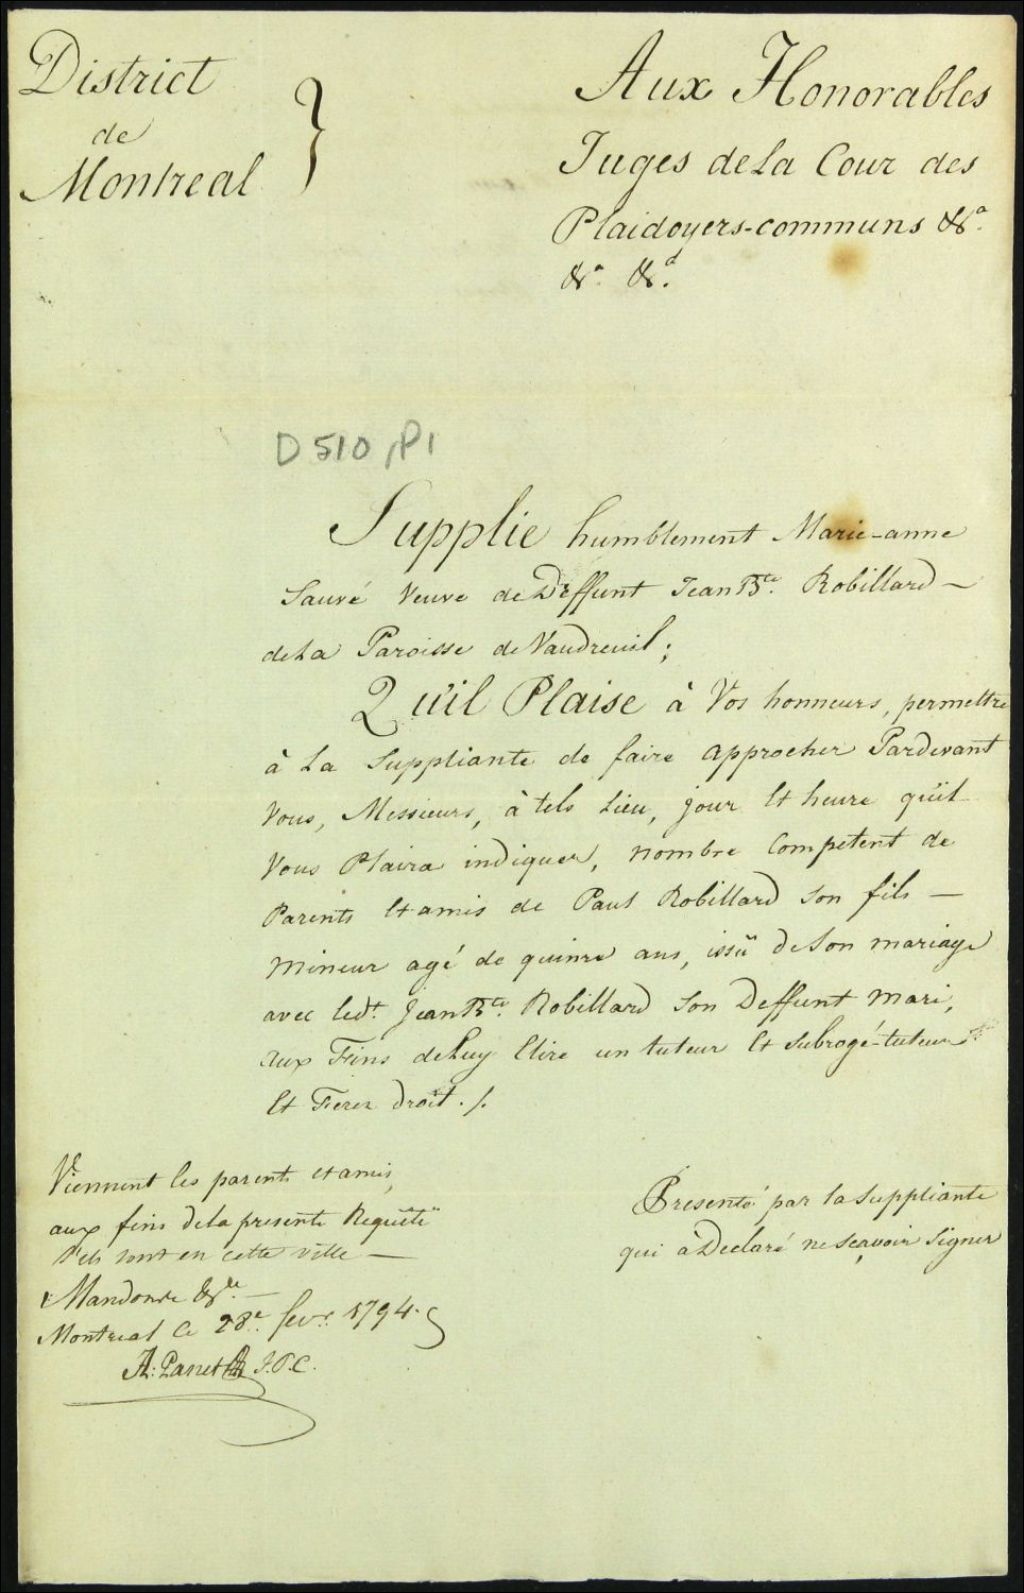 District
de
Montreal }
Aux Honorables
Juges de La Cour des
Plaidoyers-communs &c.a
&c.a &c.a
D510, P1
Supplie humblement Marie-anne
Sauvé Veuve de Deffunt Jean Bte. Robillard —
de La Paroisse de Vaudreuil ;
Qu'il Plaise à Vos honneurs, permettre
à La Suppliante de faire approcher Pardevant
Vous, Messieurs, à tels Lieu, jour Et heure qu'il
Vous Plaira indiquer, nombre Competent de
Parents Et amis de Paul Robillard Son fils —
Mineur agé de quinze ans, issû de Son mariage
avec Ledt. Jean Bte. Robillard Son Deffunt Mari,
aux Fins de Luy Elire un tuteur Et Subrogé-tuteur
Et Ferez droit . /.
Viennent les parents et amis,
aux fins de la presente Requête
s'ils sont en cette ville —
Mandons &c. —
Montreal ce 28e. fevr. 1794.
A: Panet J.P.C.
Presenté par la Suppliante
qui a Declaré ne Sçavoir Signer